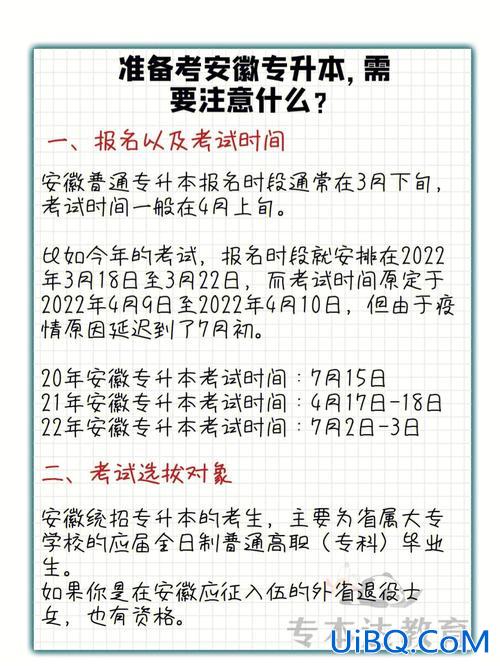 准备考安徽专升本,需
要注意什么?
一、报名以及考试时间
安徽普通专升本报名时段通常在3月下旬,
考试时间一般在4月上旬。
比如今年的考试,报名时段就安排在2022
年3月18日至3月22日,而考试时间原定于
2022年4月9日至2022年4月10日,但由于疫
情原因延迟到了7月初。
20年安徽专升本考试时间:7月15日
21年安徽专升本考试时间:4月17日-18日
22年安徽专升本考试时间:7月2日-3日
二、考试选拔对象
安徽统招专升本的考生,主要为省属大专
学校的应届全日制普通高职(专科)毕业
生。
如果你是在安徽应征入伍的外省退役士
兵,也有资格。
专本达教育
UiBQ.CoM